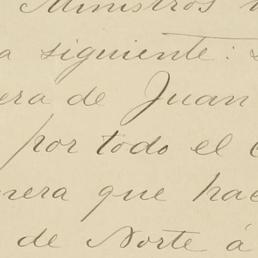 Ministros
a siguiente:
era de Juan
por todo el
nera que hac
de Norte á